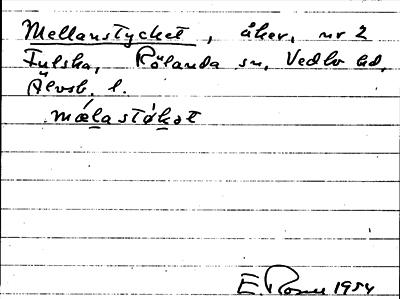 Mellanstycket, åker, nr 2
Fulska, Rölanda sn, Vedbo hd,
Älvsb. l.
mǽlastǻkət
E. Rosell 1954